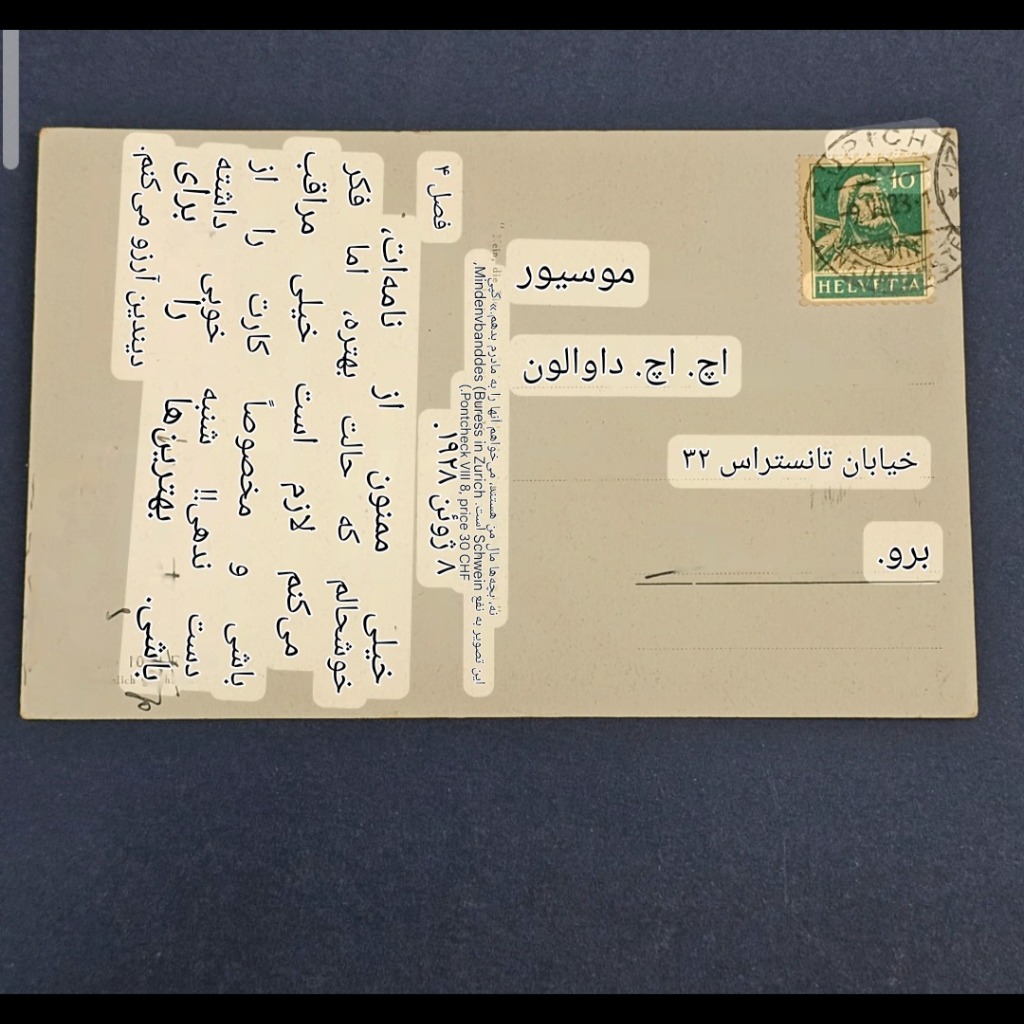 موسیور
اچ. اچ. داوالون
خیابان تانستراس ۳۲
برو.
10
HELVETIA
فصل ۴
۸ ژوئن ۱۹۲۸.
خیلی ممنون از نامه‌ات،
خوشحالم که حالت بهتره، اما فکر
می‌کنم لازم است خیلی مراقب
باشی و مخصوصاً کارت را از
دست ندهی!! شنبه خوبی داشته
باشی. بهترین‌ها را برای
دیندین آرزو می‌کنم.
نه، بچه‌ها مال من هستند، می‌خواهم آنها را به مادرم بدهم.»
این تصویر به نفع Schwein است. (Buress in Zurich Mindenvbanddes,
Pontcheck VIII 8, price 30 CHF.)